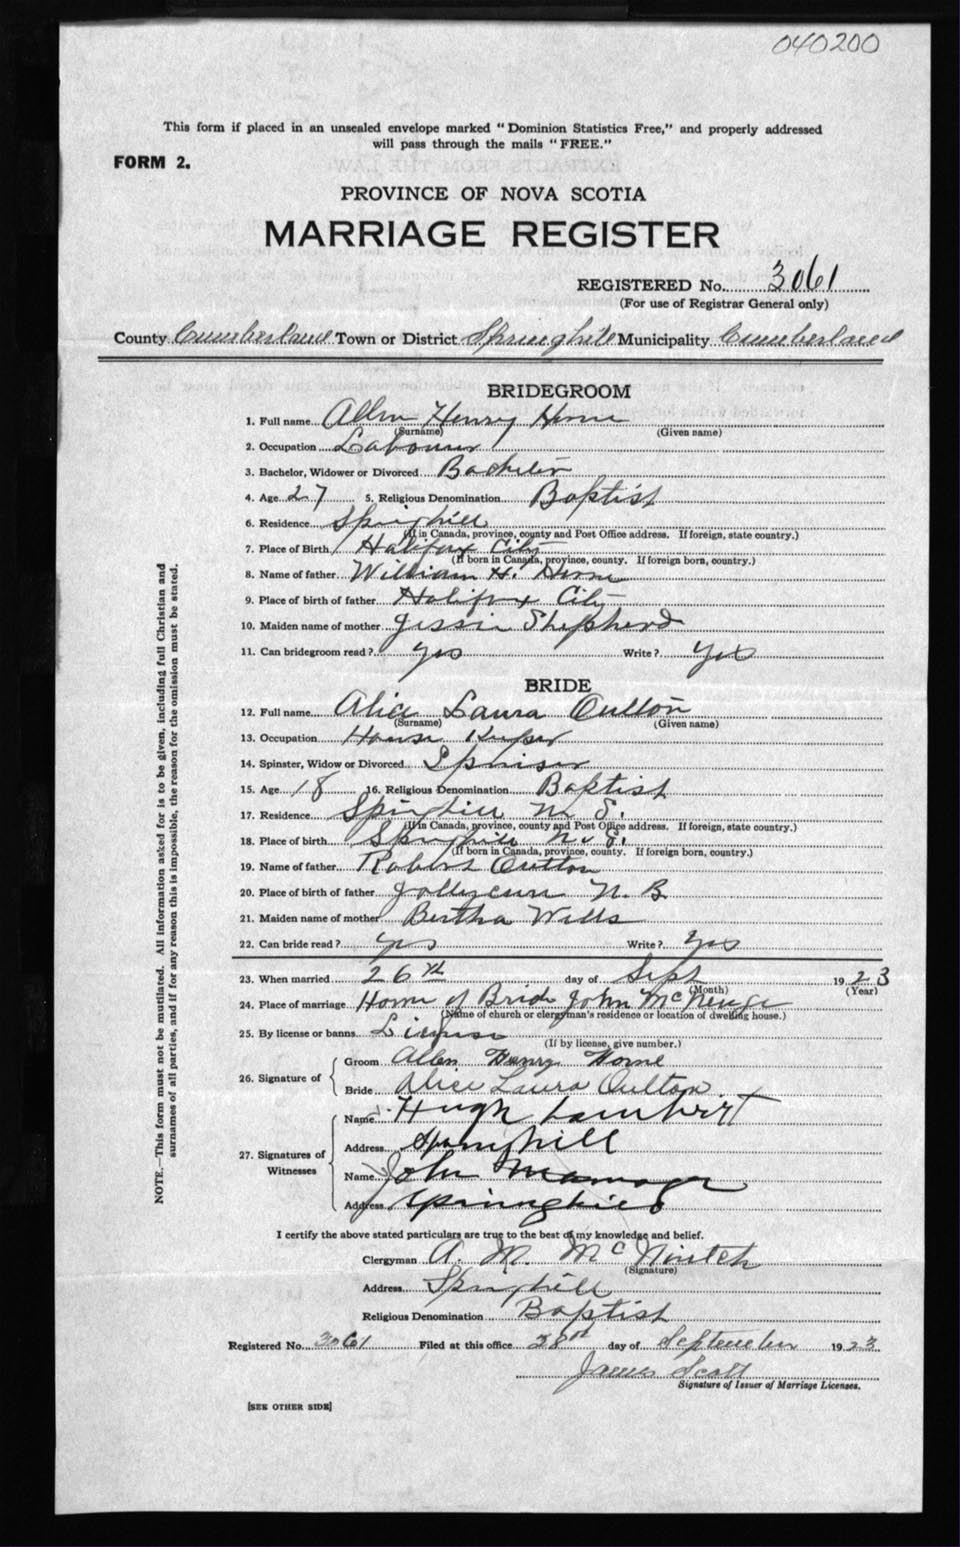 040200
This form if placed in an unsealed envelope marked "Dominion Statistics Free," and properly addressed
will pass through the mails "FREE."
FORM 2.
PROVINCE OF NOVA SCOTIA
MARRIAGE REGISTER
REGISTERED No. 3061
(For use of Registrar General only)
County Cumberland Town or District Springhill Municipality Cumberland
BRIDEGROOM
1. Full name Allen Henry Horne
(Surname) (Given name)
2. Occupation Labourer
3. Bachelor, Widower or Divorced Bachelor
4. Age 27 5. Religious Denomination Baptist
6. Residence Springhill
(If in Canada, province, county and Post Office address. If foreign, state country.)
7. Place of Birth Halifax City
(If born in Canada, province, county. If foreign born, country.)
8. Name of father William H. Horne
9. Place of birth of father Halifax City
10. Maiden name of mother Jessie Shepherd
11. Can bridegroom read? yes Write? yes
BRIDE
12. Full name Alice Laura Oulton
(Surname) (Given name)
13. Occupation House Keeper
14. Spinster, Widow or Divorced Spinster
15. Age 18 16. Religious Denomination Baptist
17. Residence Springhill N. S.
(If in Canada, province, county and Post Office address. If foreign, state country.)
18. Place of birth Springhill N. S.
(If born in Canada, province, county. If foreign born, country.)
19. Name of father Robert Oulton
20. Place of birth of father N. B.
21. Maiden name of mother Bertha Wells
22. Can bride read? yes Write? yes
23. When married 26th day of Sept 1923
(Month) (Year)
24. Place of marriage Home of Bride John
(Name of church or clergyman's residence or location of dwelling house.)
25. By license or banns License
(If by license, give number.)
26. Signature of
Groom Allen Henry Horne
Bride Alice Laura Oulton
27. Signatures of Witnesses
Name Hugh
Address Springhill
Name John
Address Springhill
I certify the above stated particulars are true to the best of my knowledge and belief.
Clergyman A. M. McNintch
(Signature)
Address Springhill
Religious Denomination Baptist
Registered No. 3061 Filed at this office 28th day of September 1923
James Scott
Signature of Issuer of Marriage Licenses.
[SEE OTHER SIDE]
NOTE.—This form must not be mutilated. All information asked for is to be given, including full Christian and
surnames of all parties, and if for any reason this is impossible, the reason for the omission must be stated.